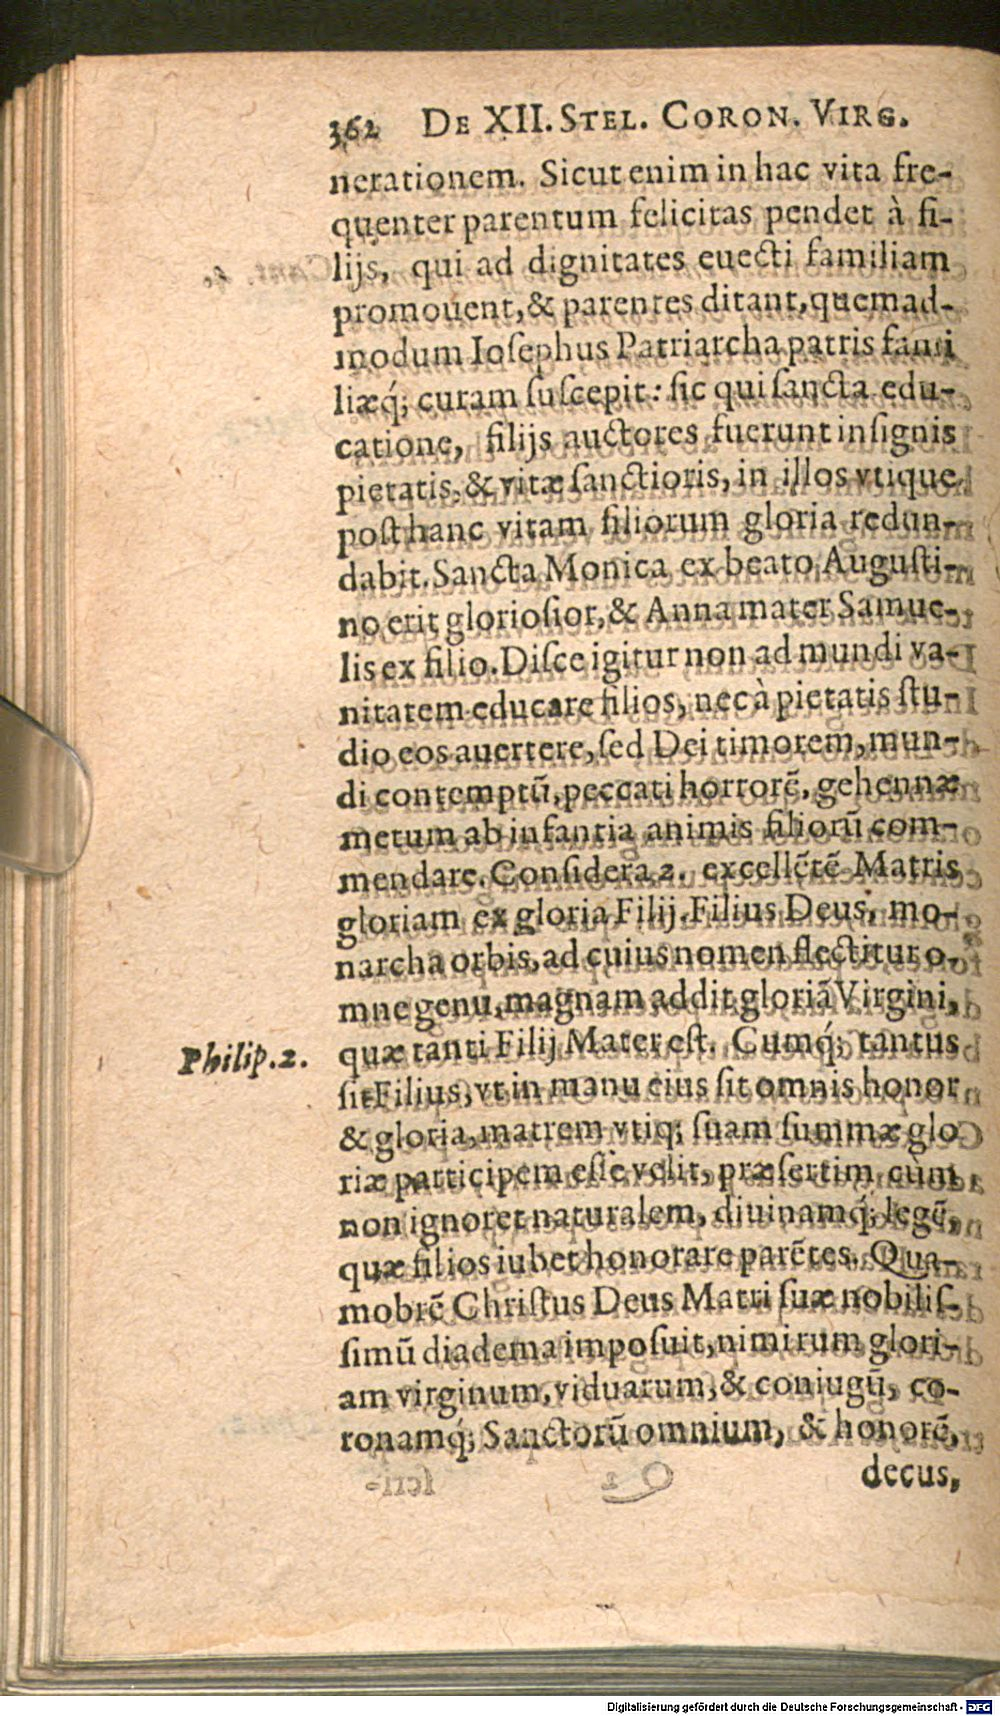 362 DE XII. STEL. CORON. VIRG.
nerationem. Sicut enim in hac vita fre-
quenter parentum felicitas pendet à fi-
lijs, qui ad dignitates euecti familiam
promouent, & parentes ditant, quemad-
modum Ioſephus Patriarcha patris fami
liæq́; curam ſuſcepit: ſic qui ſancta edu-
catione, filijs auctores fuerunt inſignis
pietatis, & vitæ ſanctioris, in illos vtique
poſt hanc vitam filiorum gloria redun-
dabit. Sancta Monica ex beato Auguſti-
no erit glorioſior, & Anna mater Samue-
lis ex filio. Diſce igitur non ad mundi va-
nitatem educare filios, nec à pietatis ſtu-
dio eos auertere, ſed Dei timorem, mun-
di contemptū, peccati horrorē, gehennæ
metum ab infantia animis filiorū com-
mendare. Conſidera 2. excellētē Matris
gloriam ex gloria Filij. Filius Deus, mo-
narcha orbis, ad cuius nomen flectitur o-
mne genu, magnam addit gloriā Virgini,
Philip. 2. quæ tanti Filij Mater eſt. Cumq́; tantus
ſit Filius, vt in manu eius ſit omnis honor
& gloria, matrem vtiq; ſuam ſummæ glo
riæ participem eſſe velit, præſertim cùm
non ignoret naturalem, diuinamq́; legē,
quæ filios iubet honorare parētes. Qua-
mobrē Chriſtus Deus Matri ſuæ nobiliſ-
ſimū diadema impoſuit, nimirum glori-
am virginum, viduarum, & coniugū, co-
ronamq́; Sanctorū omnium, & honorē,
decus,
Digitalisierung gefördert durch die Deutsche Forschungsgemeinschaft - DFG